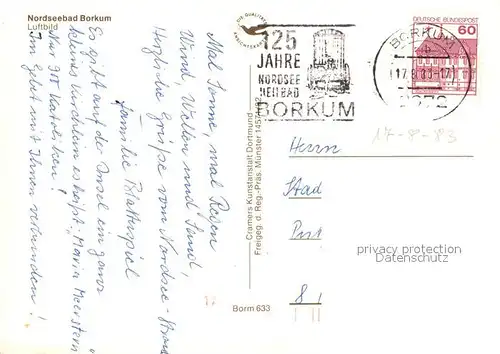 Nordseebad Borkum
Luftbild
DIE QUALITÄT
125
JAHRE
NORDSEE
HEILBAD
BORKUM
DEUTSCHE BUNDESPOST
60
BORKUM
17.8.83-17
2972
17-8-83
Mal Sonne, mal Regen
Wind, Wellen und Sand,
Herzliche Grüße vom Nordsee-Strand
Familie Blatterspiel
Es gibt auf der Insel ein ganz
kleines Kirchlein, es heißt: "Maria Meerstern"
Nur 900 Katholiken!
Im Gebet mit Ihnen verbunden!
Cramers Kunstanstalt Dortmund
Freigeg. d. Reg.-Präs. Münster
Borm 633
Herrn
privacy protection
Datenschutz